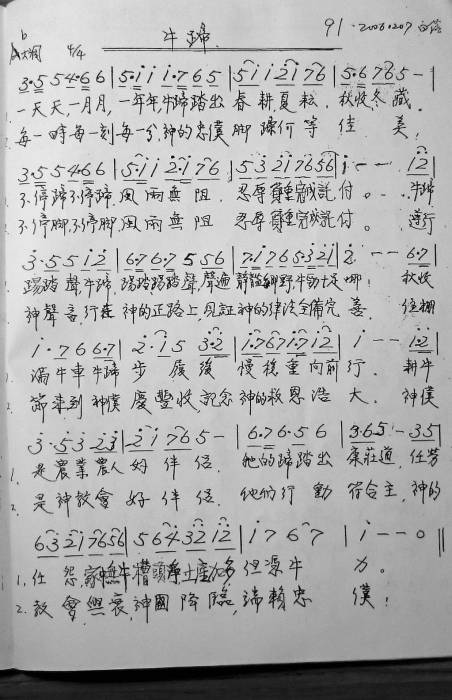 牛蹄 91 . 2006.207
b
A大調 4/4
3·5 5 4·6 6 | 5·i i i·7 6 5 | 5 i i 2 i 7 6 | 5·6 7 6 5 - |
1. 一天天,一月月,一年年,牛蹄踏出 春耕夏耘,秋收,冬藏.
2. 每一時每一刻每一分,神的忠僕脚蹤何等 佳 美,
3·5 5 4·6 6 | 5·i i 2·i 7 6 | 5 3 2 i 7 6 5 6 | i - - i 2 |
1. 不停蹄不停蹄,風雨無阻. 忍辱負重完成託付。 牛蹄
2. 不停脚,不停脚,風雨無阻 忍辱負重完成託付。 道行
3·5 5 i 2 | 6·7 6·7 5 5 6 | 7·i 7 6 5·3 2 i | 2 - - 6·7 |
踢踏聲,牛蹄,踢踏踢踏聲,聲遍 秋收
神聲言行在 神的正路上,見証神的律法全備完 善. 住棚
i · 7 6 6·7 | 2 · i 5 3·2 | i·7 6·7 i·7 i 2 | i - - i·2 |
1. 滿牛車牛蹄 步 履 緩 慢 穩 重 向 前 行. 耕牛
2. 節來到神僕 慶豐收,記念神的救恩浩 大. 神僕
3·5 3 2·3 | 2 i 7 6 5 - | 6·7 6·5 6 | 3·6 5 - 3 5 |
1. 是農業農人好伴侶. 牠的蹄踏出 康莊道,任勞
2. 是神教會 好伴侶. 他們行 動 符合主,神的
6 3 2 i 7 6 5 6 | 5 6 4 3 2 i 2 | i 7 6 7 | i - - 0 ‖
1. 任 怨,家無牛槽頭淨土產加多但憑牛 力。
2. 教會興衰,神國降臨,端賴忠 僕!